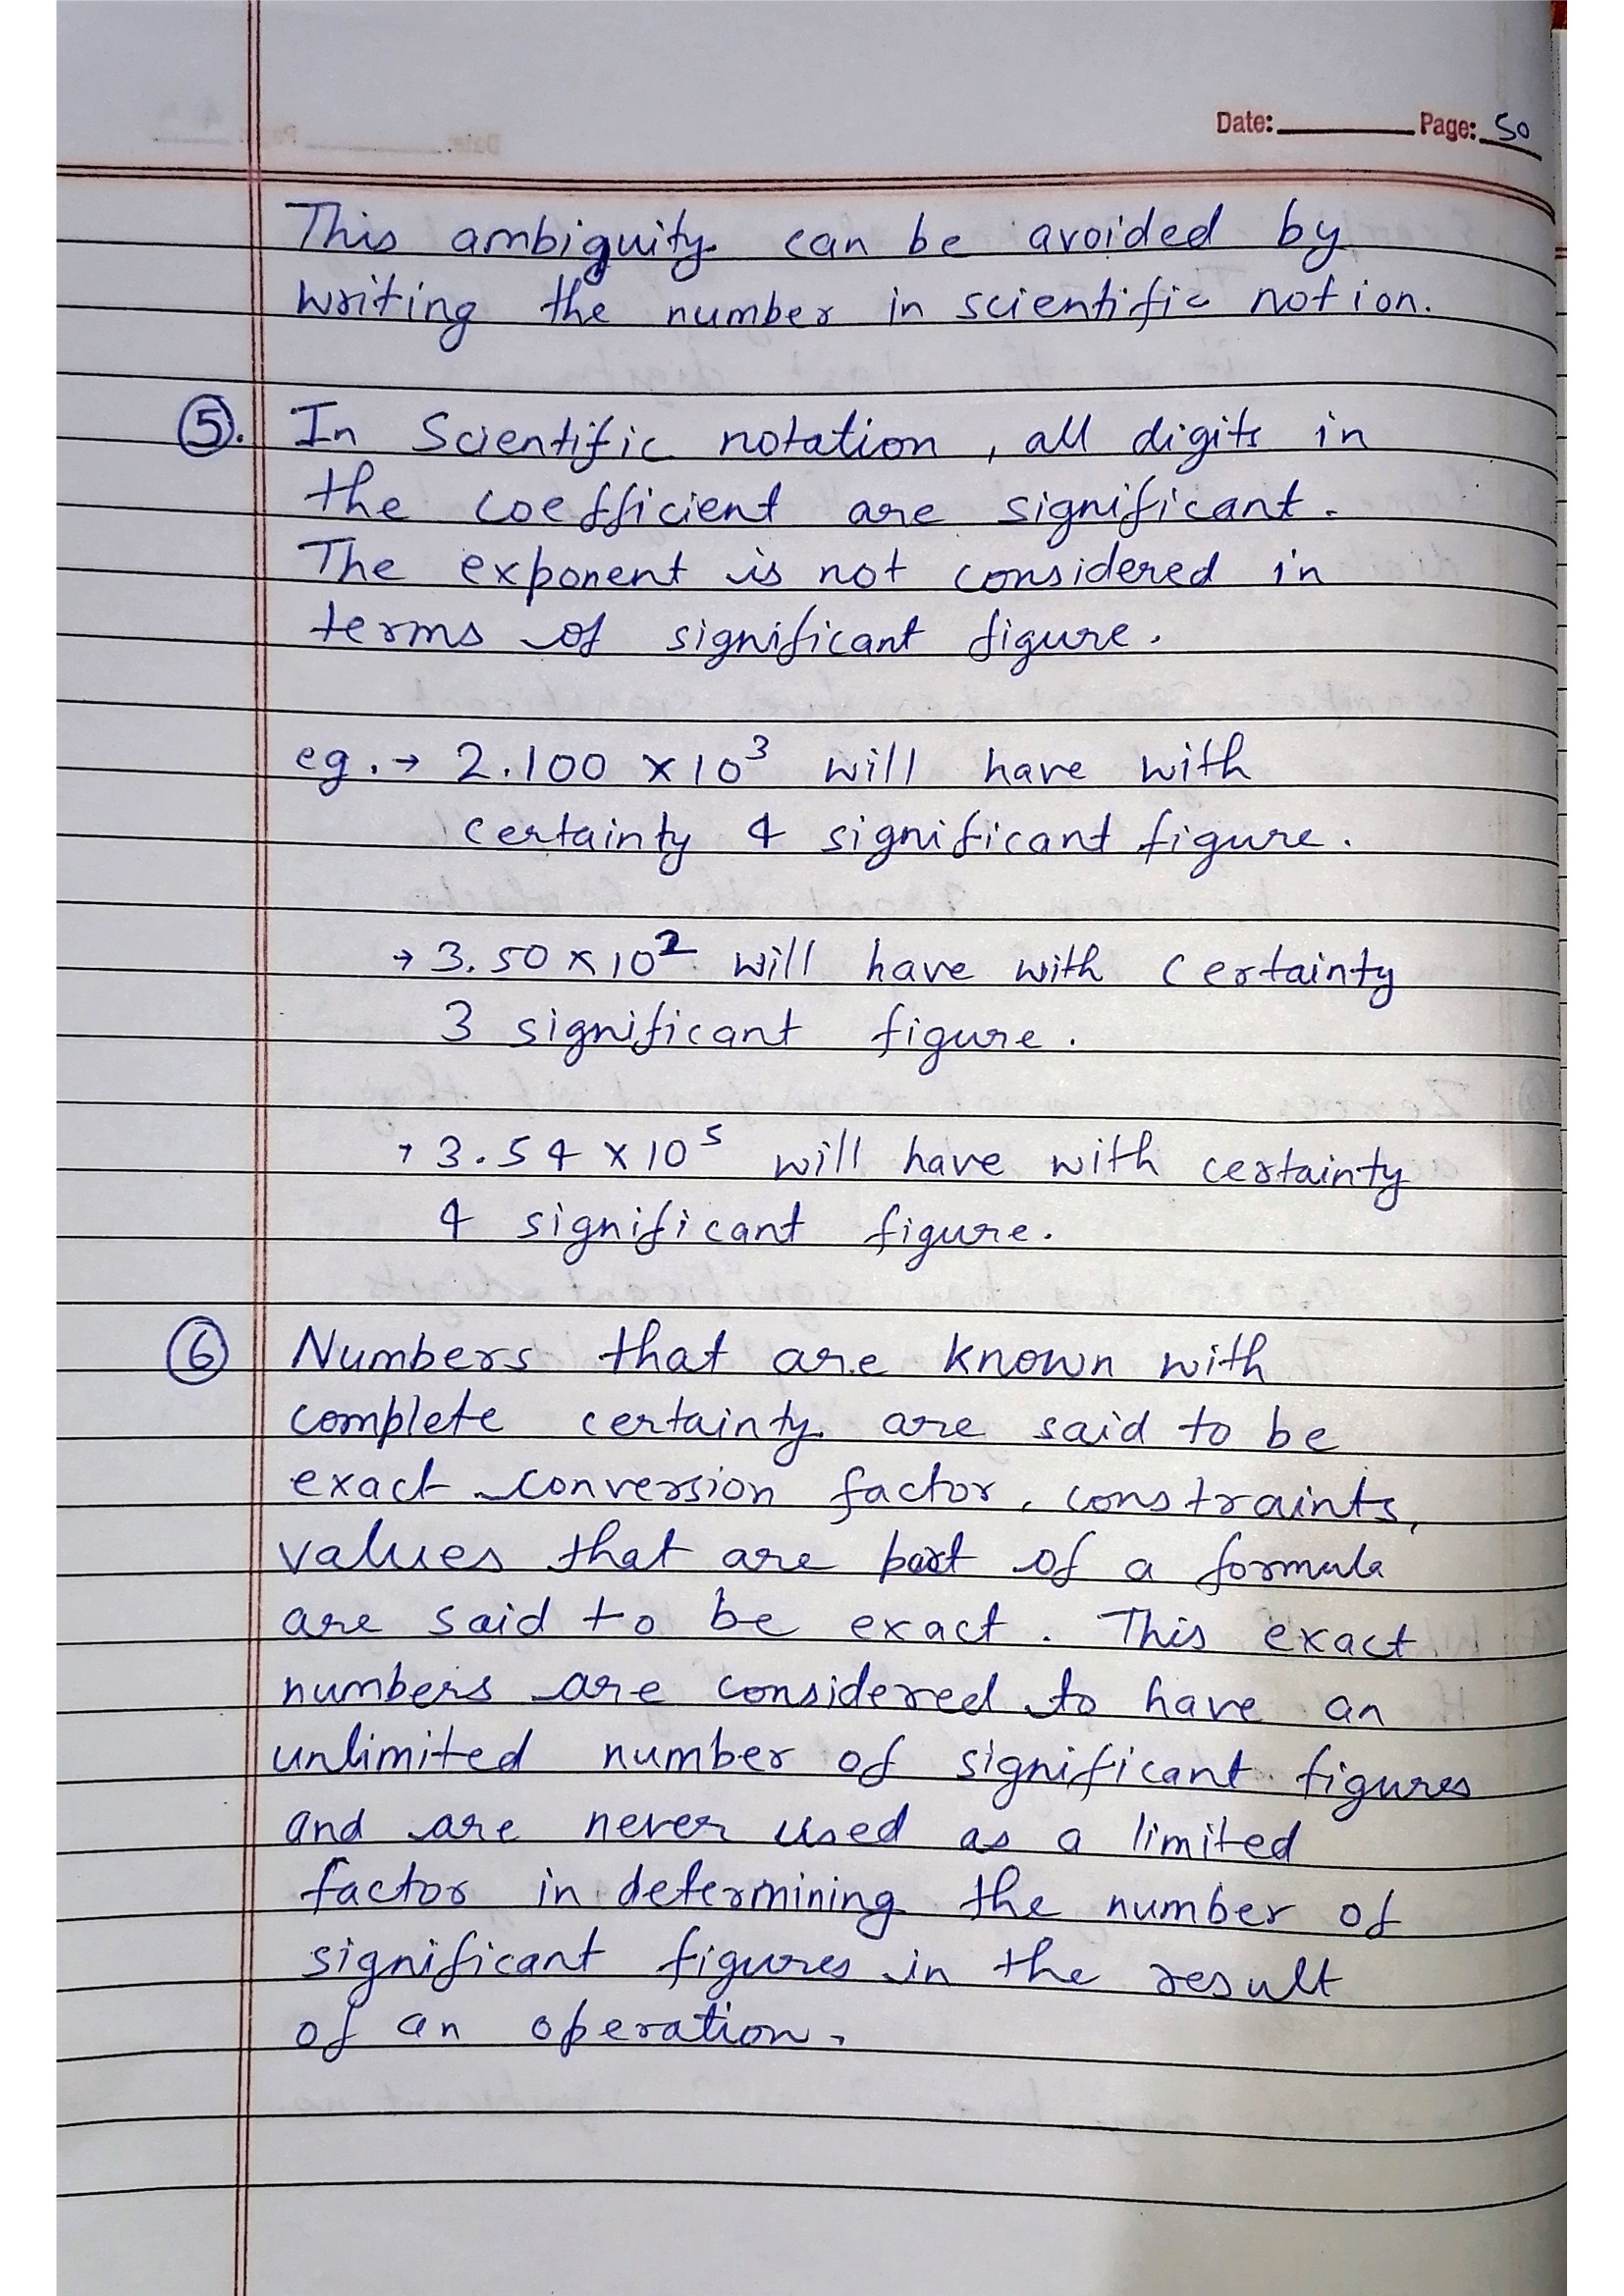 Date: Page: 50
This ambiguity can be avoided by
writing the number in scientific notion.
5. In Scientific notation, all digits in
the coefficient are significant.
The exponent is not considered in
terms of significant figure.
eg. → 2.100 × 10³ will have with
certainty 4 significant figure.
→ 3.50 × 10² will have with certainty
3 significant figure.
→ 3.54 × 10⁵ will have with certainty
4 significant figure.
6 Numbers that are known with
complete certainty are said to be
exact conversion factor, constraints,
values that are part of a formula
are said to be exact. This exact
numbers are considered to have an
unlimited number of significant figures
and are never used as a limited
factor in determining the number of
significant figures in the result
of an operation.